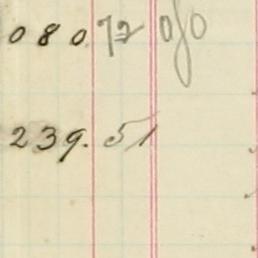 080.72 %
239.51